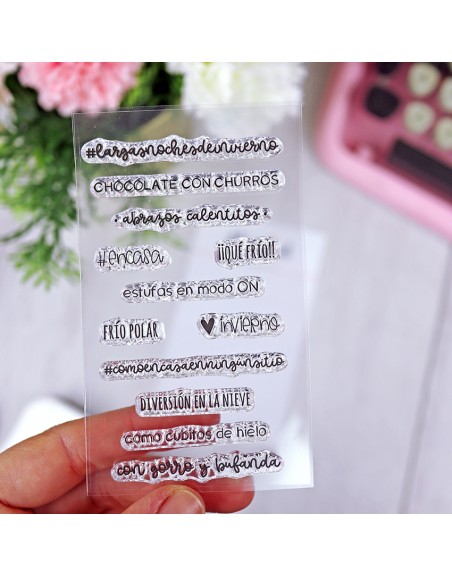 #largasnochesdeinvierno
CHOCOLATE CON CHURROS
· abrazos calentitos ·
#encasa
¡¡QUÉ FRÍO!!
estufas en modo ON
FRÍO POLAR
♥ invierno
#comoencasaenningúnsitio
DIVERSIÓN EN LA NIEVE
como cubitos de hielo
con gorro y bufanda